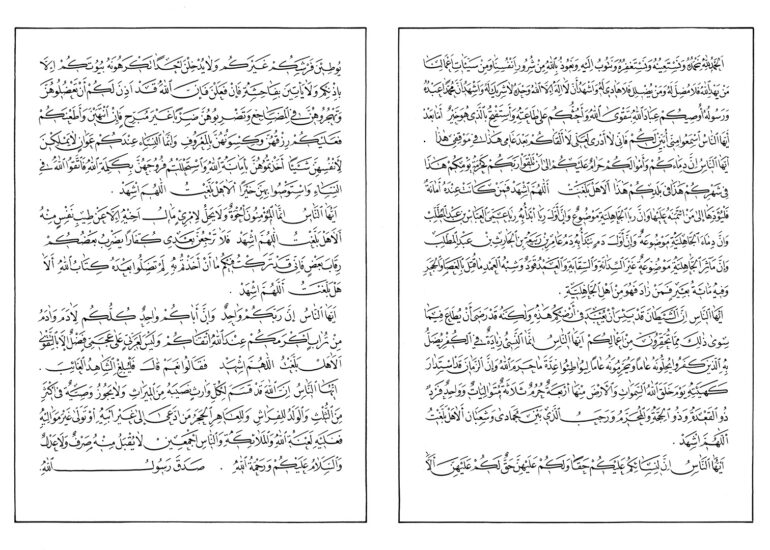 الحمد لله نحمده ونستعينه ونستغفره ونتوب إليه ونعوذ بالله من شرور أنفسنا ومن سيئات أعمالنا
من يهد الله فلا مضل له ومن يضلل فلا هادي له وأشهد أن لا إله إلا الله وحده لا شريك له وأشهد أن محمدا عبده
ورسوله أوصيكم عباد الله بتقوى الله وأحثكم على طاعته وأستفتح بالذي هو خير أما بعد
أيها الناس اسمعوا مني أبين لكم فإني لا أدري لعلي لا ألقاكم بعد عامي هذا في موقفي هذا .
أيها الناس إن دماءكم وأموالكم حرام عليكم إلى أن تلقوا ربكم كحرمة يومكم هذا
في شهركم هذا في بلدكم هذا ألا هل بلغت اللهم اشهد فمن كانت عنده أمانة
فليؤدها إلى من ائتمنه عليها وإن ربا الجاهلية موضوع وإن أول ربا أبدأ به ربا عمي العباس بن عبد المطلب
وإن دماء الجاهلية موضوعة وإن أول دم نبدأ به دم عامر بن ربيعة بن الحارث بن عبد المطلب
وإن مآثر الجاهلية موضوعة غير السدانة والسقاية والعمد قود وشبه العمد ما قتل بالعصا والحجر
وفيه مائة بعير فمن زاد فهو من أهل الجاهلية .
أيها الناس إن الشيطان قد يئس أن يعبد في أرضكم هذه ولكنه قد رضي أن يطاع فيما
سوى ذلك مما تحقرون من أعمالكم أيها الناس إنما النسيء زيادة في الكفر يضل
به الذين كفروا يحلونه عاما ويحرمونه عاما ليواطئوا عدة ما حرم الله وإن الزمان قد استدار
كهيئته يوم خلق الله السموات والأرض منها أربعة حرم ثلاثة متواليات وواحد فرد
ذو القعدة وذو الحجة والمحرم ورجب الذي بين جمادى وشعبان ألا هل بلغت
اللهم اشهد .
أيها الناس إن لنسائكم عليكم حقا ولكم عليهن حق لكم عليهن ألا
يوطئن فرشكم غيركم ولا يدخلن أحدا تكرهونه بيوتكم إلا
بإذنكم ولا يأتين بفاحشة فإن فعلن فإن الله قد أذن لكم أن تعضلوهن
وتهجروهن في المضاجع وتضربوهن ضربا غير مبرح فإن انتهين وأطعنكم
فعليكم رزقهن وكسوتهن بالمعروف وإنما النساء عندكم عوان لا يملكن
لأنفسهن شيئا أخذتموهن بأمانة الله واستحللتم فروجهن بكلمة الله فاتقوا الله في
النساء واستوصوا بهن خيرا ألا هل بلغت اللهم اشهد .
أيها الناس إنما المؤمنون إخوة ولا يحل لامرئ مال أخيه إلا عن طيب نفس منه
ألا هل بلغت اللهم اشهد فلا ترجعن بعدي كفارا يضرب بعضكم
رقاب بعض فإني قد تركت فيكم ما أن أخذتم به لم تضلوا بعده كتاب الله ألا
هل بلغت اللهم اشهد .
أيها الناس إن ربكم واحد وإن أباكم واحد كلكم لآدم وآدم
من تراب أكرمكم عند الله أتقاكم وليس لعربي على عجمي فضل إلا بالتقوى
ألا هل بلغت اللهم اشهد فقالوا نعم قال فليبلغ الشاهد الغائب .
أيها الناس إن الله قد قسم لكل وارث نصيبه من الميراث ولا يجوز وصية في أكثر
من الثلث والولد للفراش وللعاهر الحجر من ادعى إلى غير أبيه أو تولى غير مواليه
فعليه لعنة الله والملائكة والناس أجمعين لا يقبل منه صرف ولا عدل
والسلام عليكم ورحمة الله . صدق رسول الله